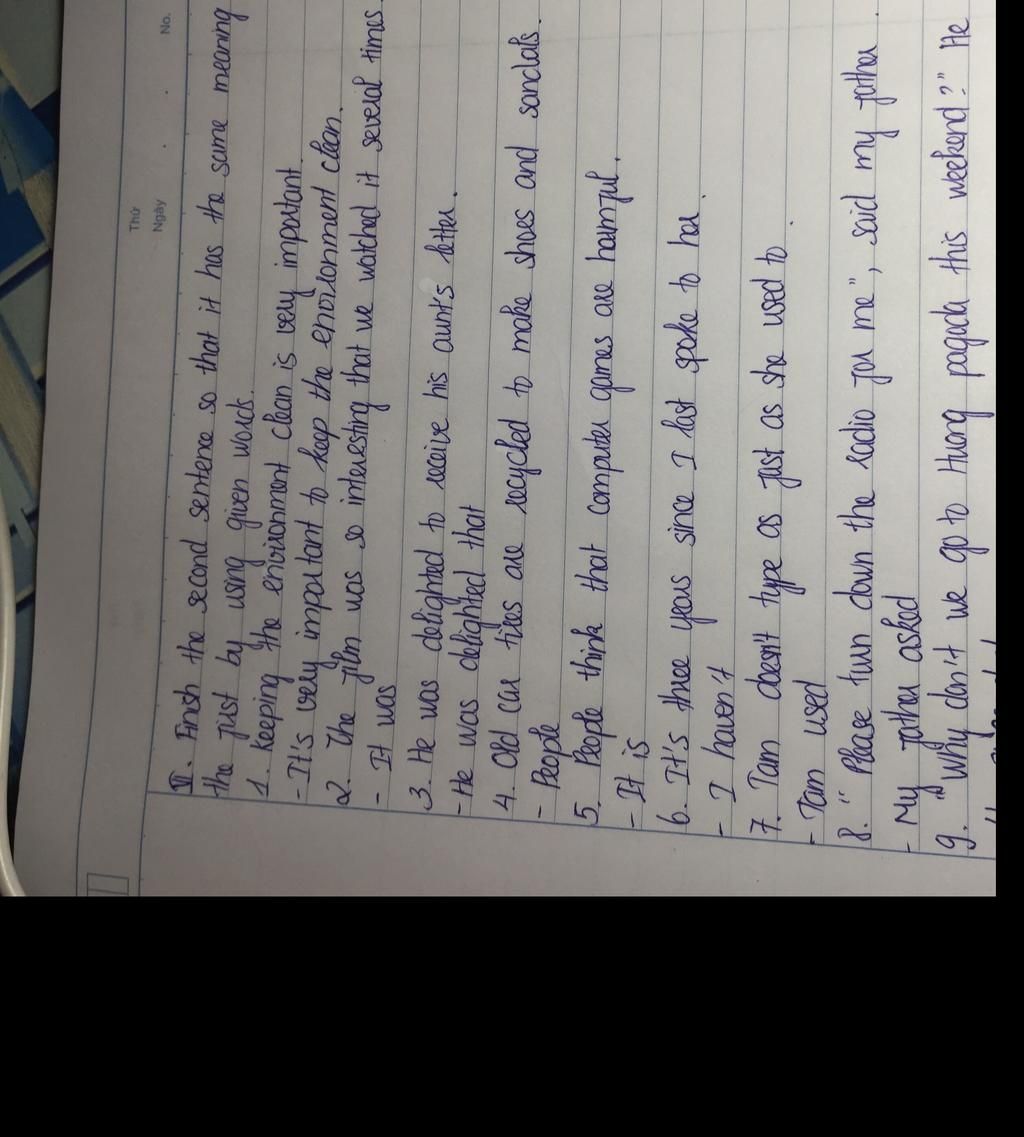 Thứ
Ngày
No.
VI. Finish the second sentence so that it has the same meaning
the just by using given words.
1. keeping the environment clean is very important.
- It's very important to keep the environment clean.
2. The film was so interesting that we watched it several times.
- It was
3. He was delighted to receive his aunt's letter.
- He was delighted that
4. Old car tires are recycled to make shoes and sandals.
- People
5. People think that computer games are harmful.
- It is
6. It's three years since I last spoke to her.
- I haven't
7. Tam doesn't type as fast as she used to.
- Tam used
8. "Please turn down the radio for me", said my father.
- My father asked
9. "Why don't we go to Huong pagoda this weekend?" He